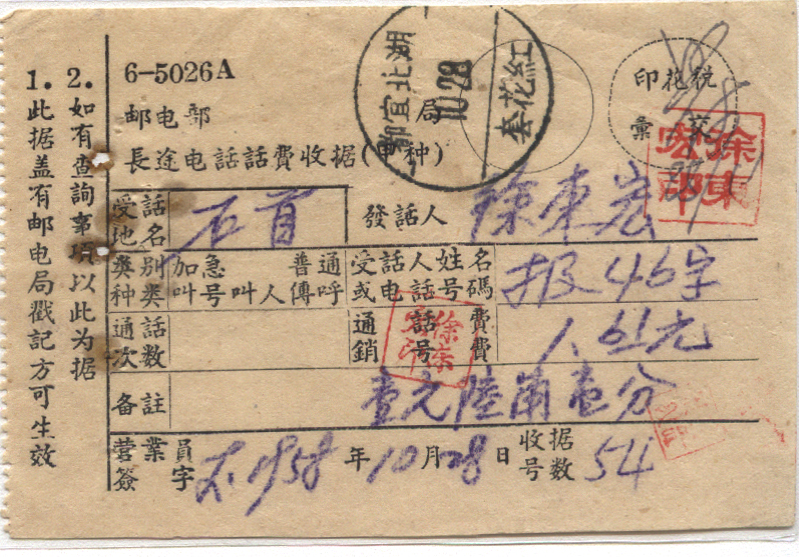 6-5026A
邮电部 局
長途电話話費收据(甲种)
湖北宜都
10.28
紅花套
印花税
彙
徐東宏印
受話地名 石首 發話人 徐東宏
类别种类 加急叫号 普通叫人傳呼 受話人姓名或电話号碼 报46字
通話次数 通話費 銷号費 1.61元
徐东宏印
备註 壹元陸角壹分
营業員簽字 1958年10月28日 收据号数 54
1.此据盖有邮电局戳記方可生效
2.如有查詢事項以此为据